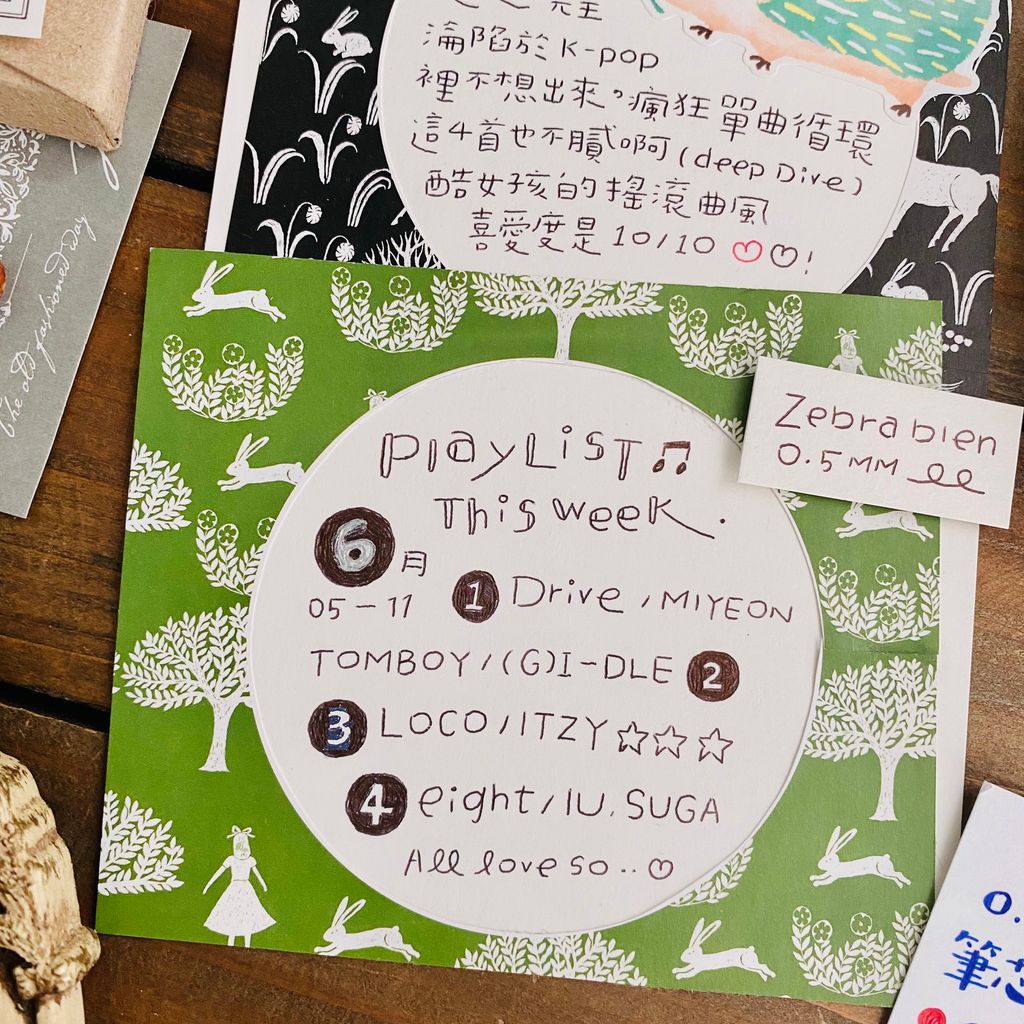 淪陷於 K-pop
裡不想出來。瘋狂單曲循環
這4首也不膩啊(deep Dive)
酷女孩的搖滾曲風
喜愛度是 10/10 ♡♡!
The old fashioned way
Zebra blen
0.5MM
PlayList♫
This week.
6月
05-11
1 Drive/MIYEON
TOMBOY/(G)I-DLE 2
3 LOCO/ITZY☆☆☆
4 eight/IU.SUGA
All love so..♡
0.
筆芯